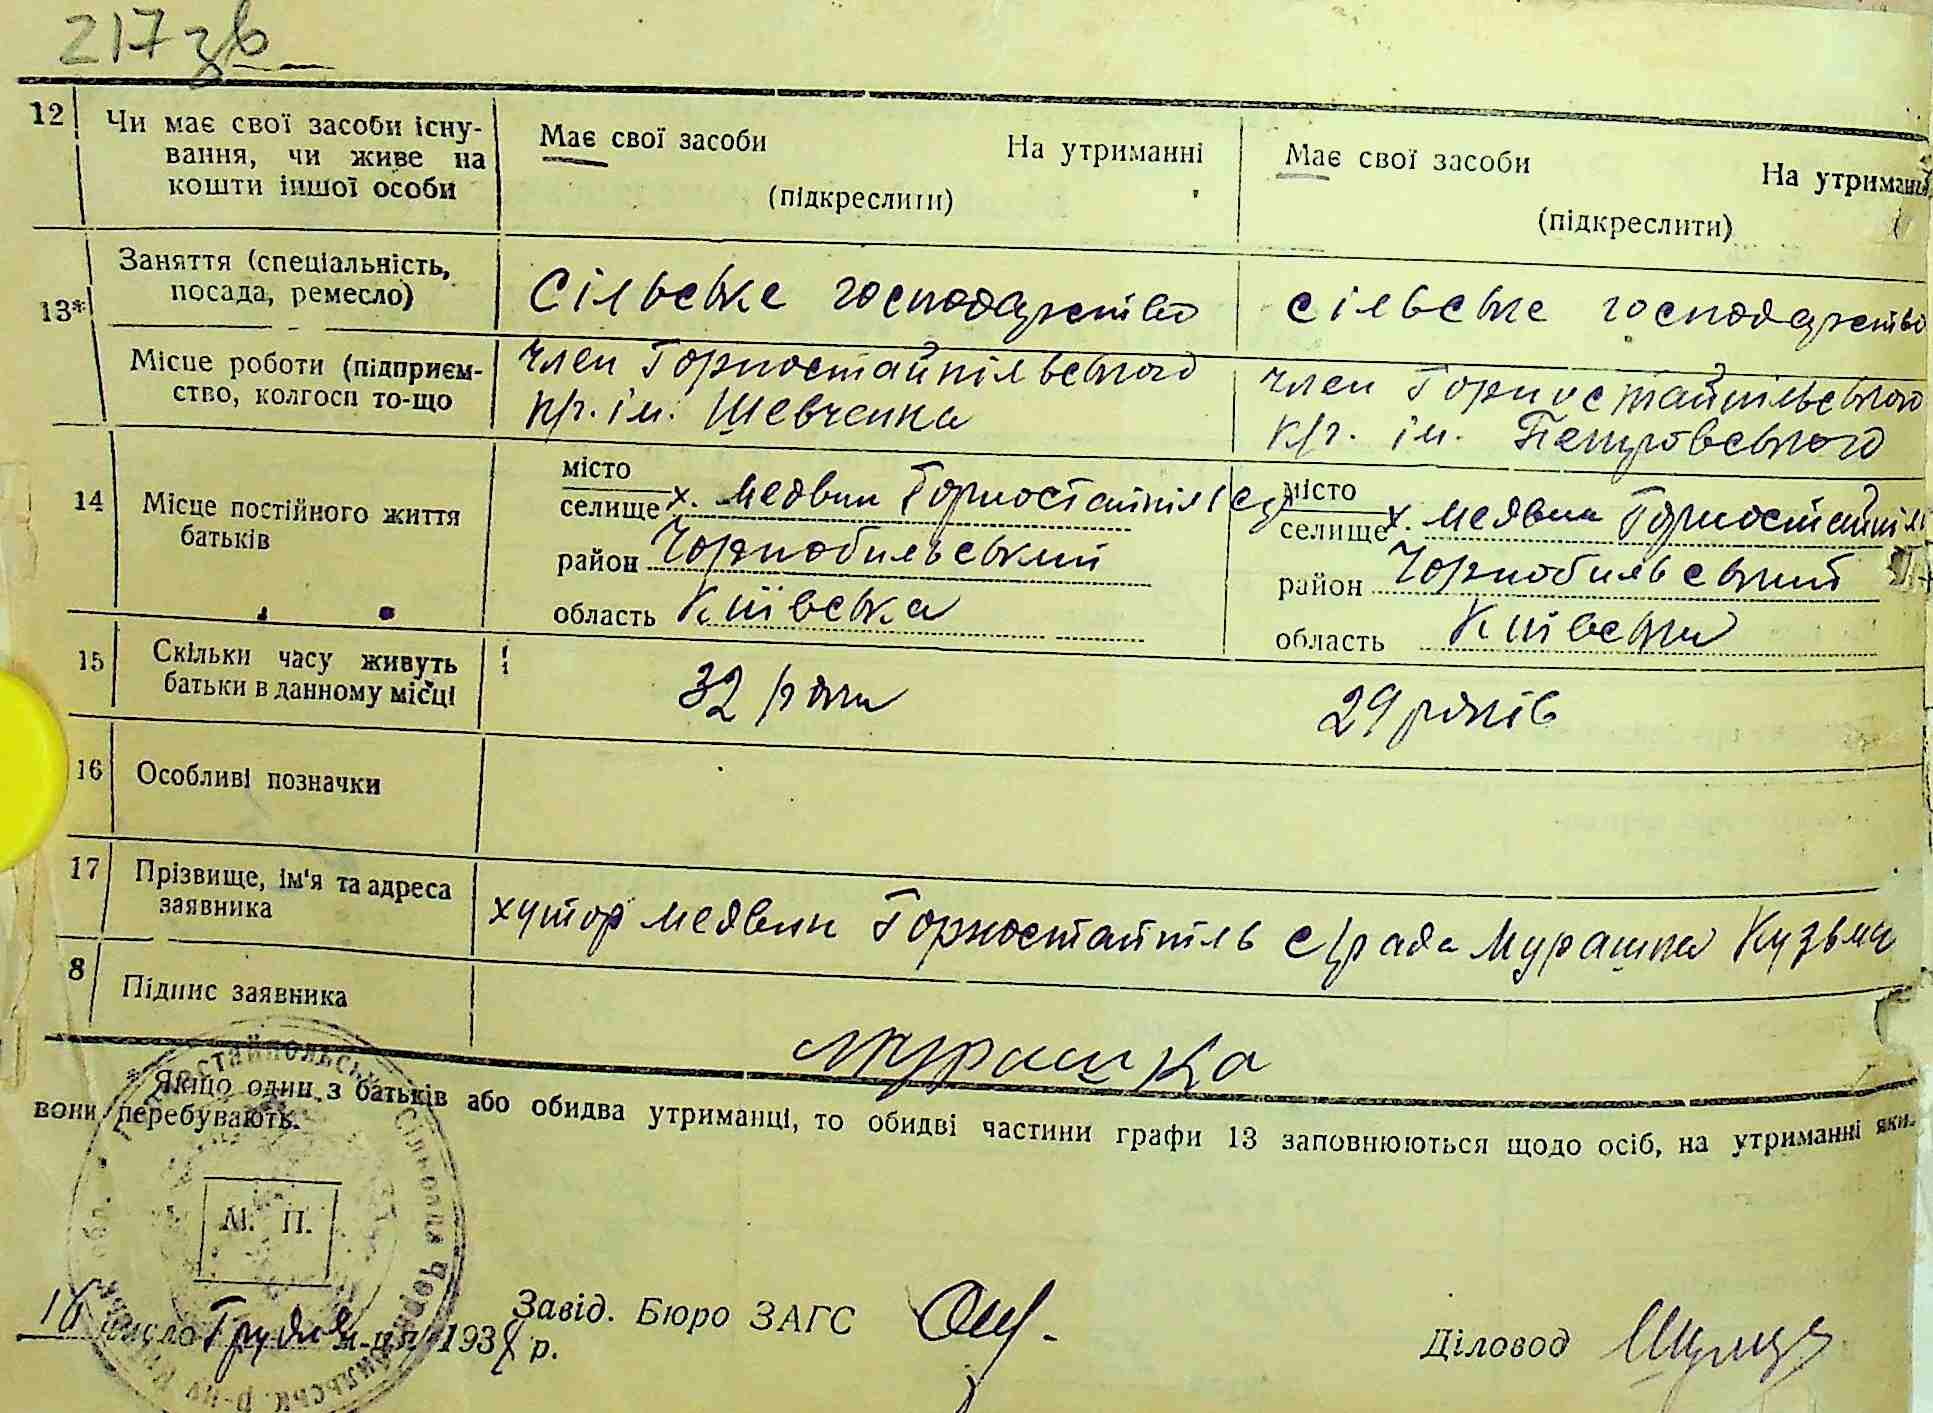 217 зв
12 Чи має свої засоби існу-
вання, чи живе на
кошти іншої особи
Має свої засоби На утриманні
(підкреслити)
Має свої засоби На утриманні
(підкреслити)
13* Заняття (спеціальність,
посада, ремесло)
Сільське господарство
сільське господарство
Місце роботи (підприєм-
ство, колгосп то-що
член Горностайпільського
к/г. ім. Шевченка
член Горностайпільського
к/г. ім. Петровського
14 Місце постійного життя
батьків
місто
селище х. Медвин Горностайпіль с/р
район Чорнобильський
область Київська
місто
селище х. Медвин Горностайпіль
район Чорнобильський
область Київська
15 Скільки часу живуть
батьки в данному місці
32 роки
29 років
16 Особливі позначки
17 Прізвище, ім'я та адреса
заявника
хутор Медвин Горностайпіль с/рада Мурашка Кузьма
8 Підпис заявника
Мурашка
* Якщо один з батьків або обидва утриманці, то обидві частини графи 13 заповнюються щодо осіб, на утриманні яки-
вони перебувають.
М. П.
16 число Грудня м-ця 193 р.
Завід. Бюро ЗАГС
Діловод